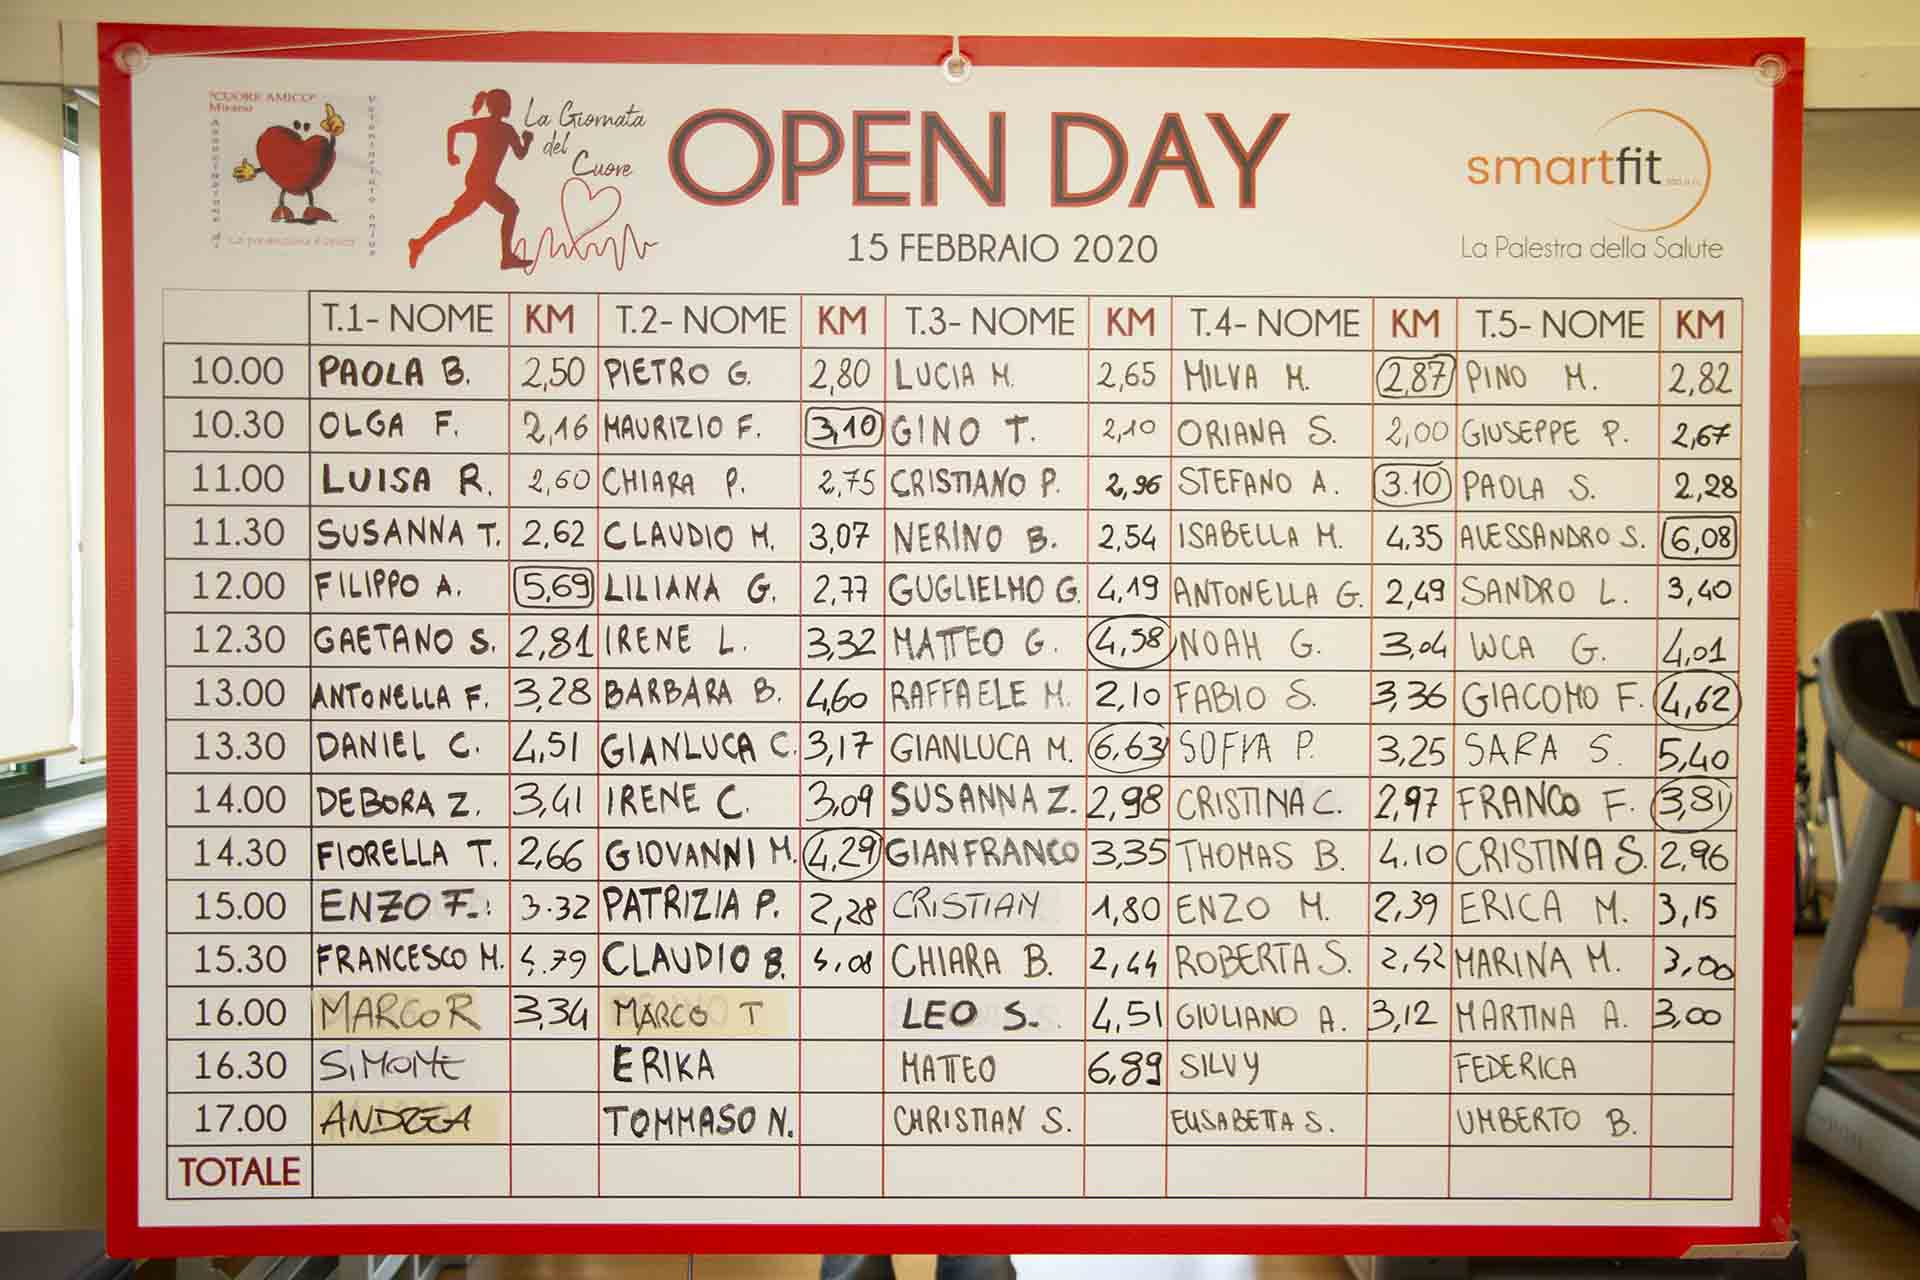 "CUORE AMICO"
Mirano
Associazione di
Volontariato onlus
La prevenzione è unica
La Giornata
del
Cuore
OPEN DAY
15 FEBBRAIO 2020
smartfit
La Palestra della Salute
T.1- NOME KM T.2- NOME KM T.3- NOME KM T.4- NOME KM T.5- NOME KM
10.00 PAOLA B. 2,50 PIETRO G. 2,80 LUCIA M. 2,65 MILVA M. 2,87 PINO M. 2,82
10.30 OLGA F. 2,16 MAURIZIO F. 3,10 GINO T. 2,10 ORIANA S. 2,00 GIUSEPPE P. 2,67
11.00 LUISA R. 2,60 CHIARA P. 2,75 CRISTIANO P. 2,96 STEFANO A. 3.10 PAOLA S. 2,28
11.30 SUSANNA T. 2,62 CLAUDIO M. 3,07 NERINO B. 2,54 ISABELLA M. 4,35 ALESSANDRO S. 6,08
12.00 FILIPPO A. 5,69 LILIANA G. 2,77 GUGLIELMO G. 4,19 ANTONELLA G. 2,49 SANDRO L. 3,40
12.30 GAETANO S. 2,81 IRENE L. 3,32 MATTEO G. 4,58 NOAH G. 3,04 LUCA G. 4,01
13.00 ANTONELLA F. 3,28 BARBARA B. 4,60 RAFFAELE M. 2,10 FABIO S. 3,36 GIACOMO F. 4,62
13.30 DANIEL C. 4,51 GIANLUCA C. 3,17 GIANLUCA M. 6,63 SOFIA P. 3,25 SARA S. 5,40
14.00 DEBORA Z. 3,41 IRENE C. 3,09 SUSANNA Z. 2,98 CRISTINA C. 2,97 FRANCO F. 3,81
14.30 FIORELLA T. 2,66 GIOVANNI M. 4,29 GIANFRANCO 3,35 THOMAS B. 4.10 CRISTINA S. 2,96
15.00 ENZO F. 3.32 PATRIZIA P. 2,28 CRISTIAN 1,80 ENZO M. 2,39 ERICA M. 3,15
15.30 FRANCESCO M. 4.79 CLAUDIO B. 4,08 CHIARA B. 2,44 ROBERTA S. 2,42 MARINA M. 3,00
16.00 MARCO R 3,34 MARCO T LEO S. 4,51 GIULIANO A. 3,12 MARTINA A. 3,00
16.30 SIMONE ERIKA MATTEO 6,89 SILVY FEDERICA
17.00 ANDREA TOMMASO N. CHRISTIAN S. ELISABETTA S. UMBERTO B.
TOTALE